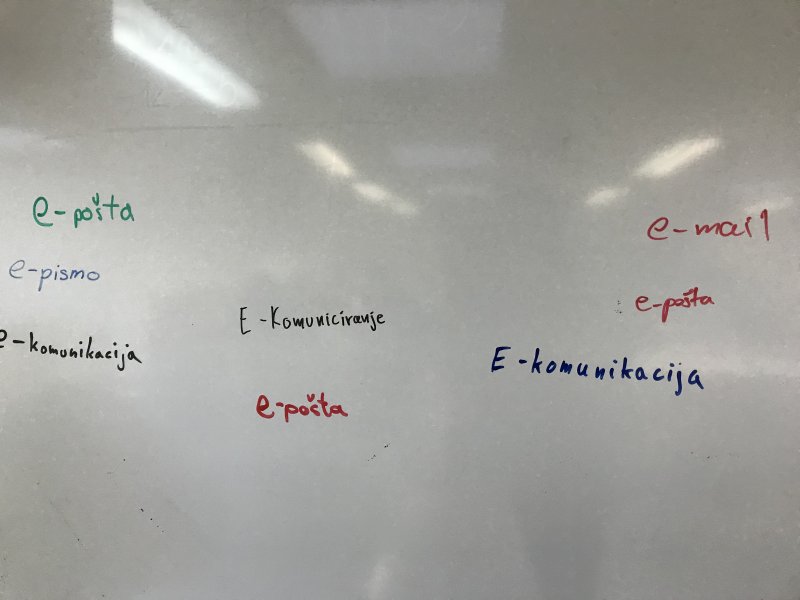 e-pošta
e-pismo
e-komunikacija
E-Komuniciranje
e-pošta
e-mail
e-pošta
E-komunikacija